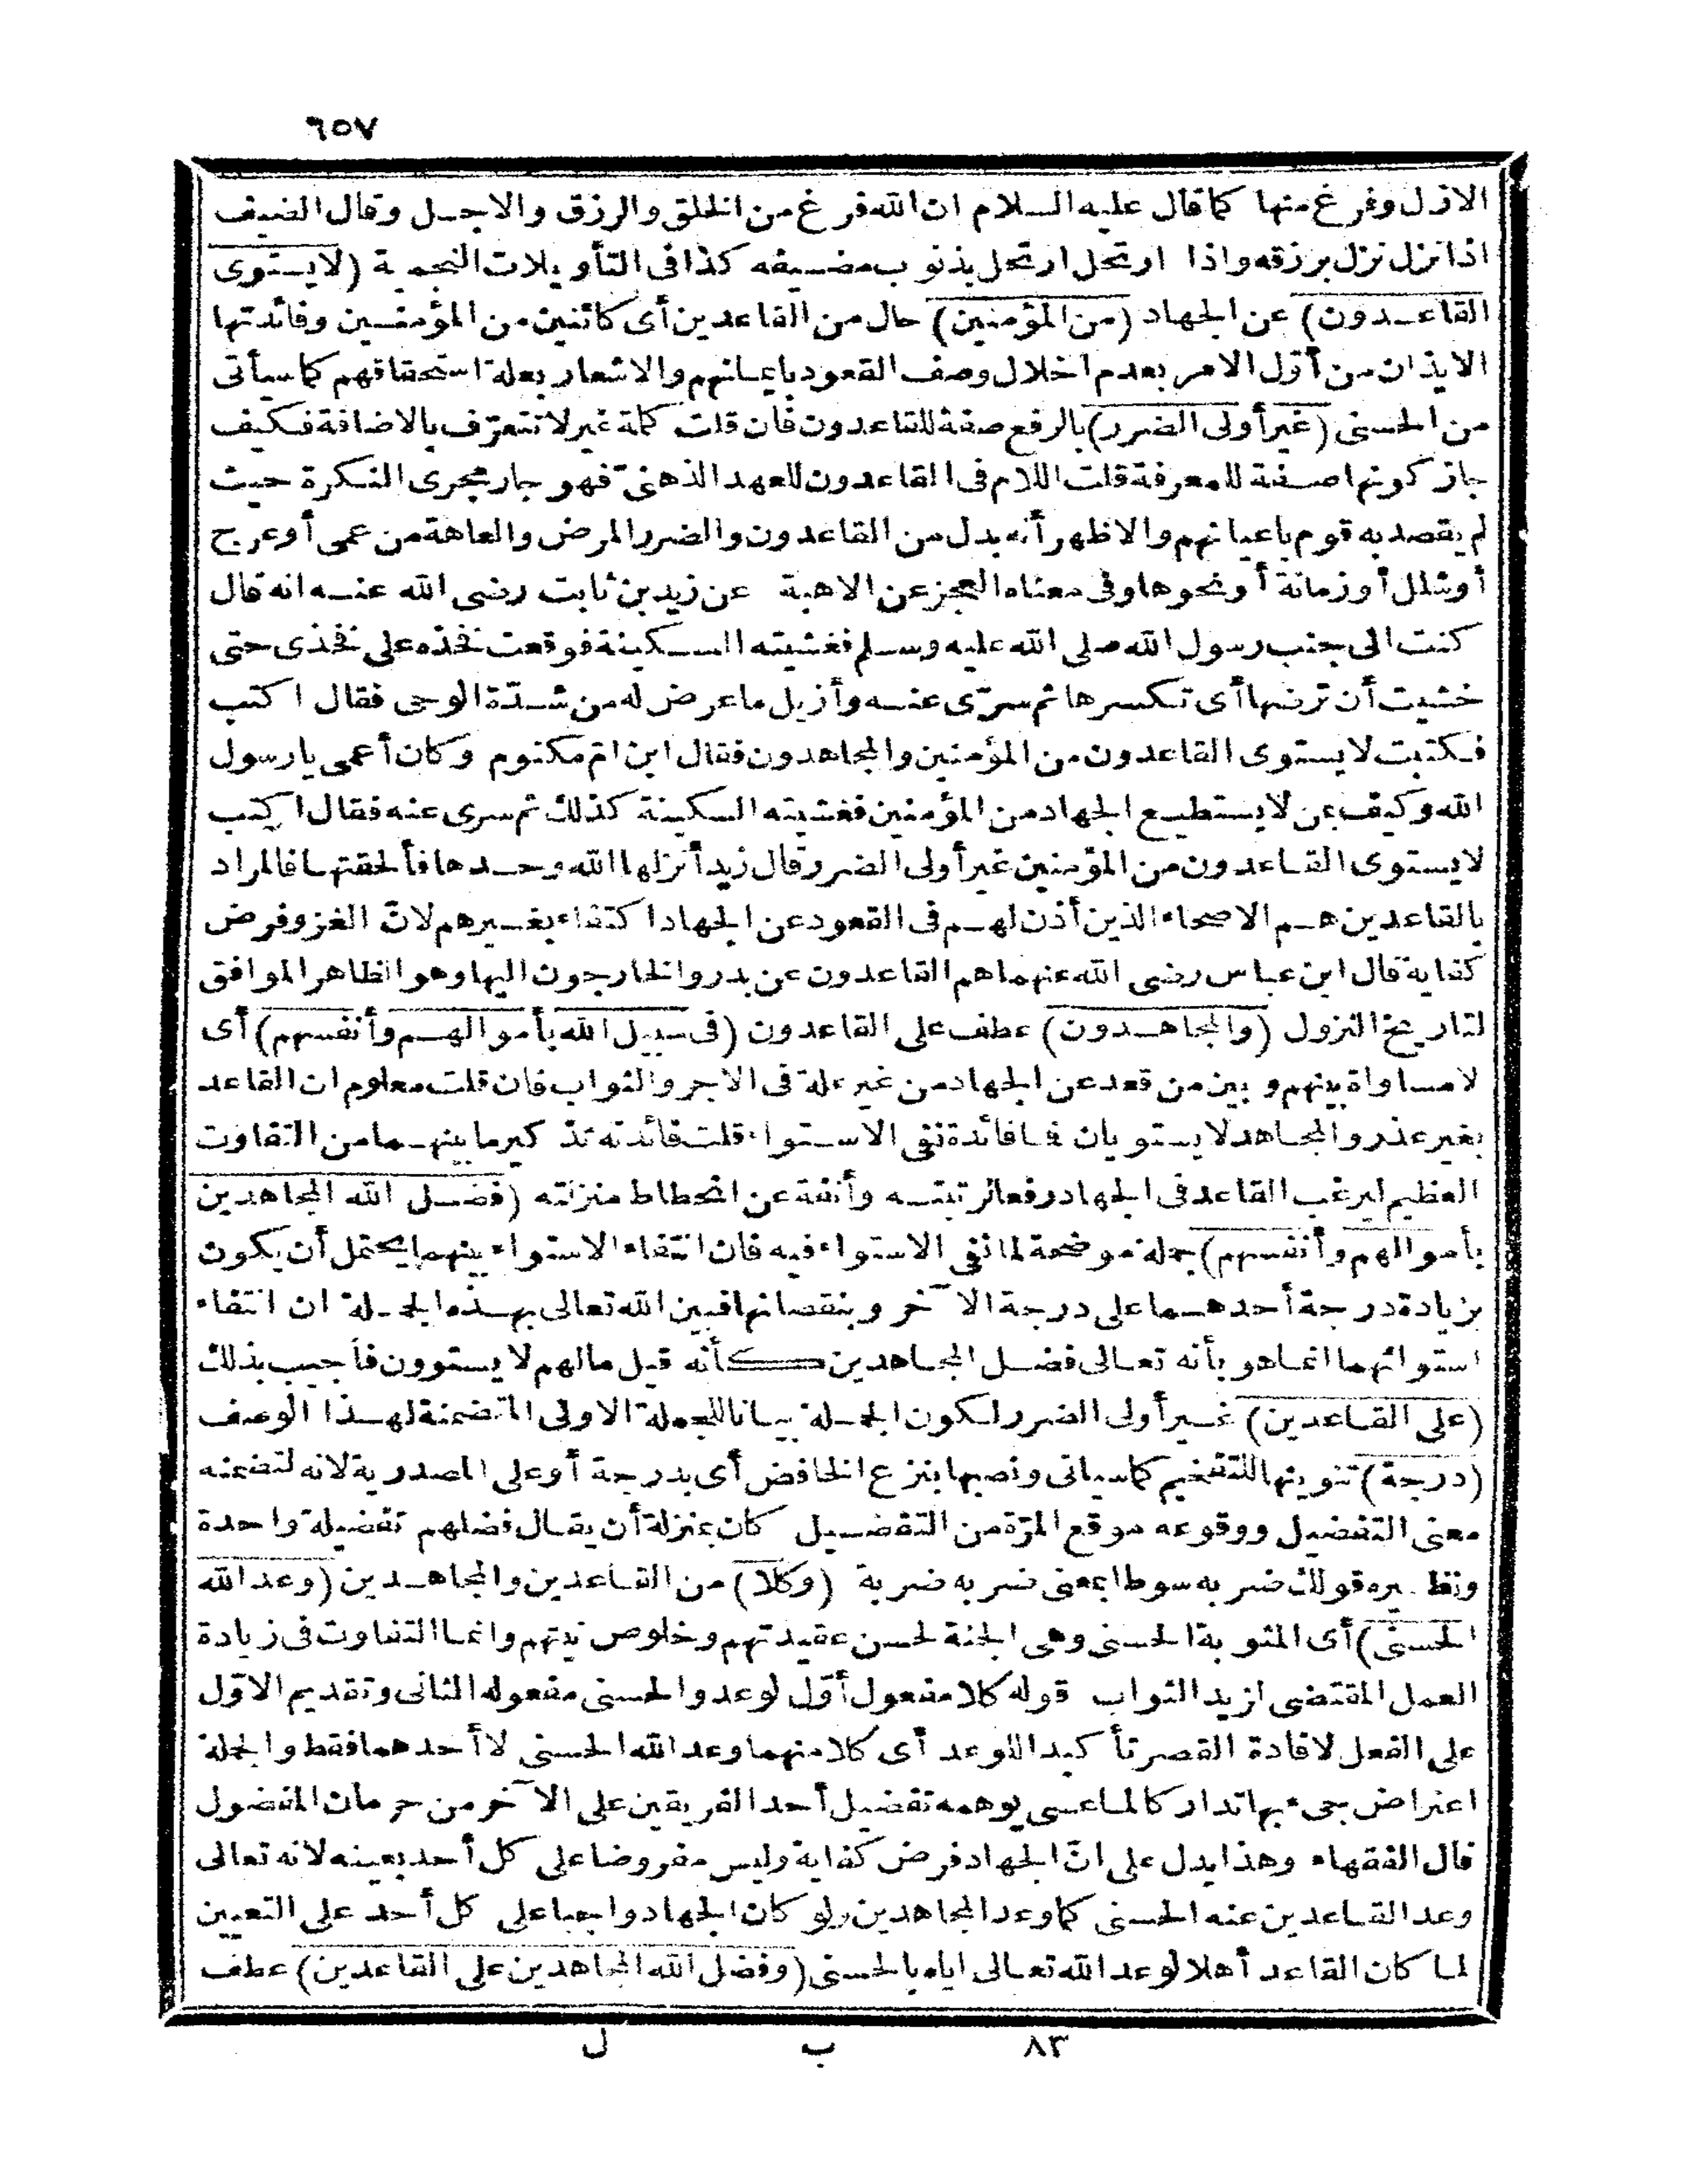 ٦٥٧
الازل وفرغ منها كما قال عليه السلام ان الله فرغ من الخلق والرزق والاجل وقال الضيف
اذا نزل نزل برزقه واذا ارتحل ارتحل بذنوب مضيفه كذا فى التأويلات النجمية (لا يستوى
القاعدون) عن الجهاد (من المؤمنين) حال من القاعدين أى كائنين من المؤمنين وفائدتها
الايذان من أوّل الامر بعدم اخلال وصف القعود بايمانهم والاشعار بعلة استحقاقهم كما سيأتى
من الحسنى (غير أولى الضرر) بالرفع صفة للقاعدون فان قلت كلمة غير لا تتعرّف بالاضافة فكيف
جاز كونها صفة للمعرفة قلت اللام فى القاعدون للعهد الذهنىّ فهو جار مجرى النكرة حيث
لم يقصد به قوم باعيانهم والاظهر أنه بدل من القاعدون والضرر المرض والعاهة من عمى أو عرج
أو شلل أو زمانة أو نحوها وفى معناه العجز عن الاهبة عن زيد بن ثابت رضى الله عنه انه قال
كنت الى جنب رسول الله صلى الله عليه وسلم فغشيته السكينة فوقعت فخذه على فخذى حتى
خشيت أن ترضها أى تكسرها ثم سرّى عنه وأزيل ما عرض له من شدّة الوحى فقال اكتب
فكتبت لا يستوى القاعدون من المؤمنين والمجاهدون فقال ابن امّ مكتوم وكان أعمى يا رسول
الله وكيف بمن لا يستطيع الجهاد من المؤمنين فغشيته السكينة كذلك ثم سرى عنه فقال اكتب
لا يستوى القاعدون من المؤمنين غير أولى الضرر قال زيد أنزلها الله وحدها فألحقتها فالمراد
بالقاعدين هم الاصحاء الذين أذن لهم فى القعود عن الجهاد اكتفاء بغيرهم لانّ الغزو فرض
كفاية قال ابن عباس رضى الله عنهما هم القاعدون عن بدر والخارجون اليها وهو الظاهر الموافق
لتاريخ النزول (والمجاهدون) عطف على القاعدون (فى سبيل الله بأموالهم وأنفسهم) أى
لا مساواة بينهم وبين من قعد عن الجهاد من غير علة فى الاجر والثواب فان قلت معلوم ان القاعد
بغير عذر والمجاهد لا يستويان فما فائدة نفى الاستواء قلت فائدته تذكير ما بينهما من التفاوت
العظيم ليرغب القاعد فى الجهاد رفعا لرتبته وأنفة عن انحطاط منزلته (فضل الله المجاهدين
بأموالهم وأنفسهم) جملة موضحة لما نفى الاستواء فيه فان انتفاء الاستواء بينهما يحتمل أن يكون
بزيادة درجة أحدهما على درجة الآخر وبنقصانها فبين الله تعالى بهذه الجملة ان انتفاء
استوائهما انما هو بأنه تعالى فضل المجاهدين كأنه قيل مالهم لا يستوون فأجيب بذلك
(على القاعدين) غير أولى الضرر لكون الجملة بيانا للجملة الاولى المتضمنة لهذا الوصف
(درجة) تنوينها للتفخيم كما سيأتى ونصبها بنزع الخافض أى بدرجة أو على المصدرية لانه لتضمنه
معنى التفضيل ووقوعه موقع المرّة من التفضيل كان بمنزلة أن يقال فضلهم تفضيلة واحدة
ونظيره قولك ضربه سوطا بمعنى ضربه ضربة (وكلا) من القاعدين والمجاهدين (وعد الله
الحسنى) أى المثوبة الحسنى وهى الجنة لحسن عقيدتهم وخلوص نيتهم وانما التفاوت فى زيادة
العمل المقتضى لزيد الثواب قوله كلا مفعول أوّل لوعد والحسنى مفعوله الثانى وتقديم الاوّل
على الفعل لافادة القصر تأكيدا للوعد أى كلا منهما وعد الله الحسنى لا أحدهما فقط والجملة
اعتراض جىء بها تداركا لما عسى يوهمه تفضيل أحد الفريقين على الآخر من حرمان المفضول
قال الفقهاء وهذا يدل على انّ الجهاد فرض كفاية وليس مفروضا على كل أحد بعينه لانه تعالى
وعد القاعدين عنه الحسنى كما وعد المجاهدين ولو كان الجهاد واجبا على كل أحد على التعيين
لما كان القاعد أهلا لوعد الله تعالى اياه بالحسنى (وفضل الله المجاهدين على القاعدين) عطف
٨٣ ب ل